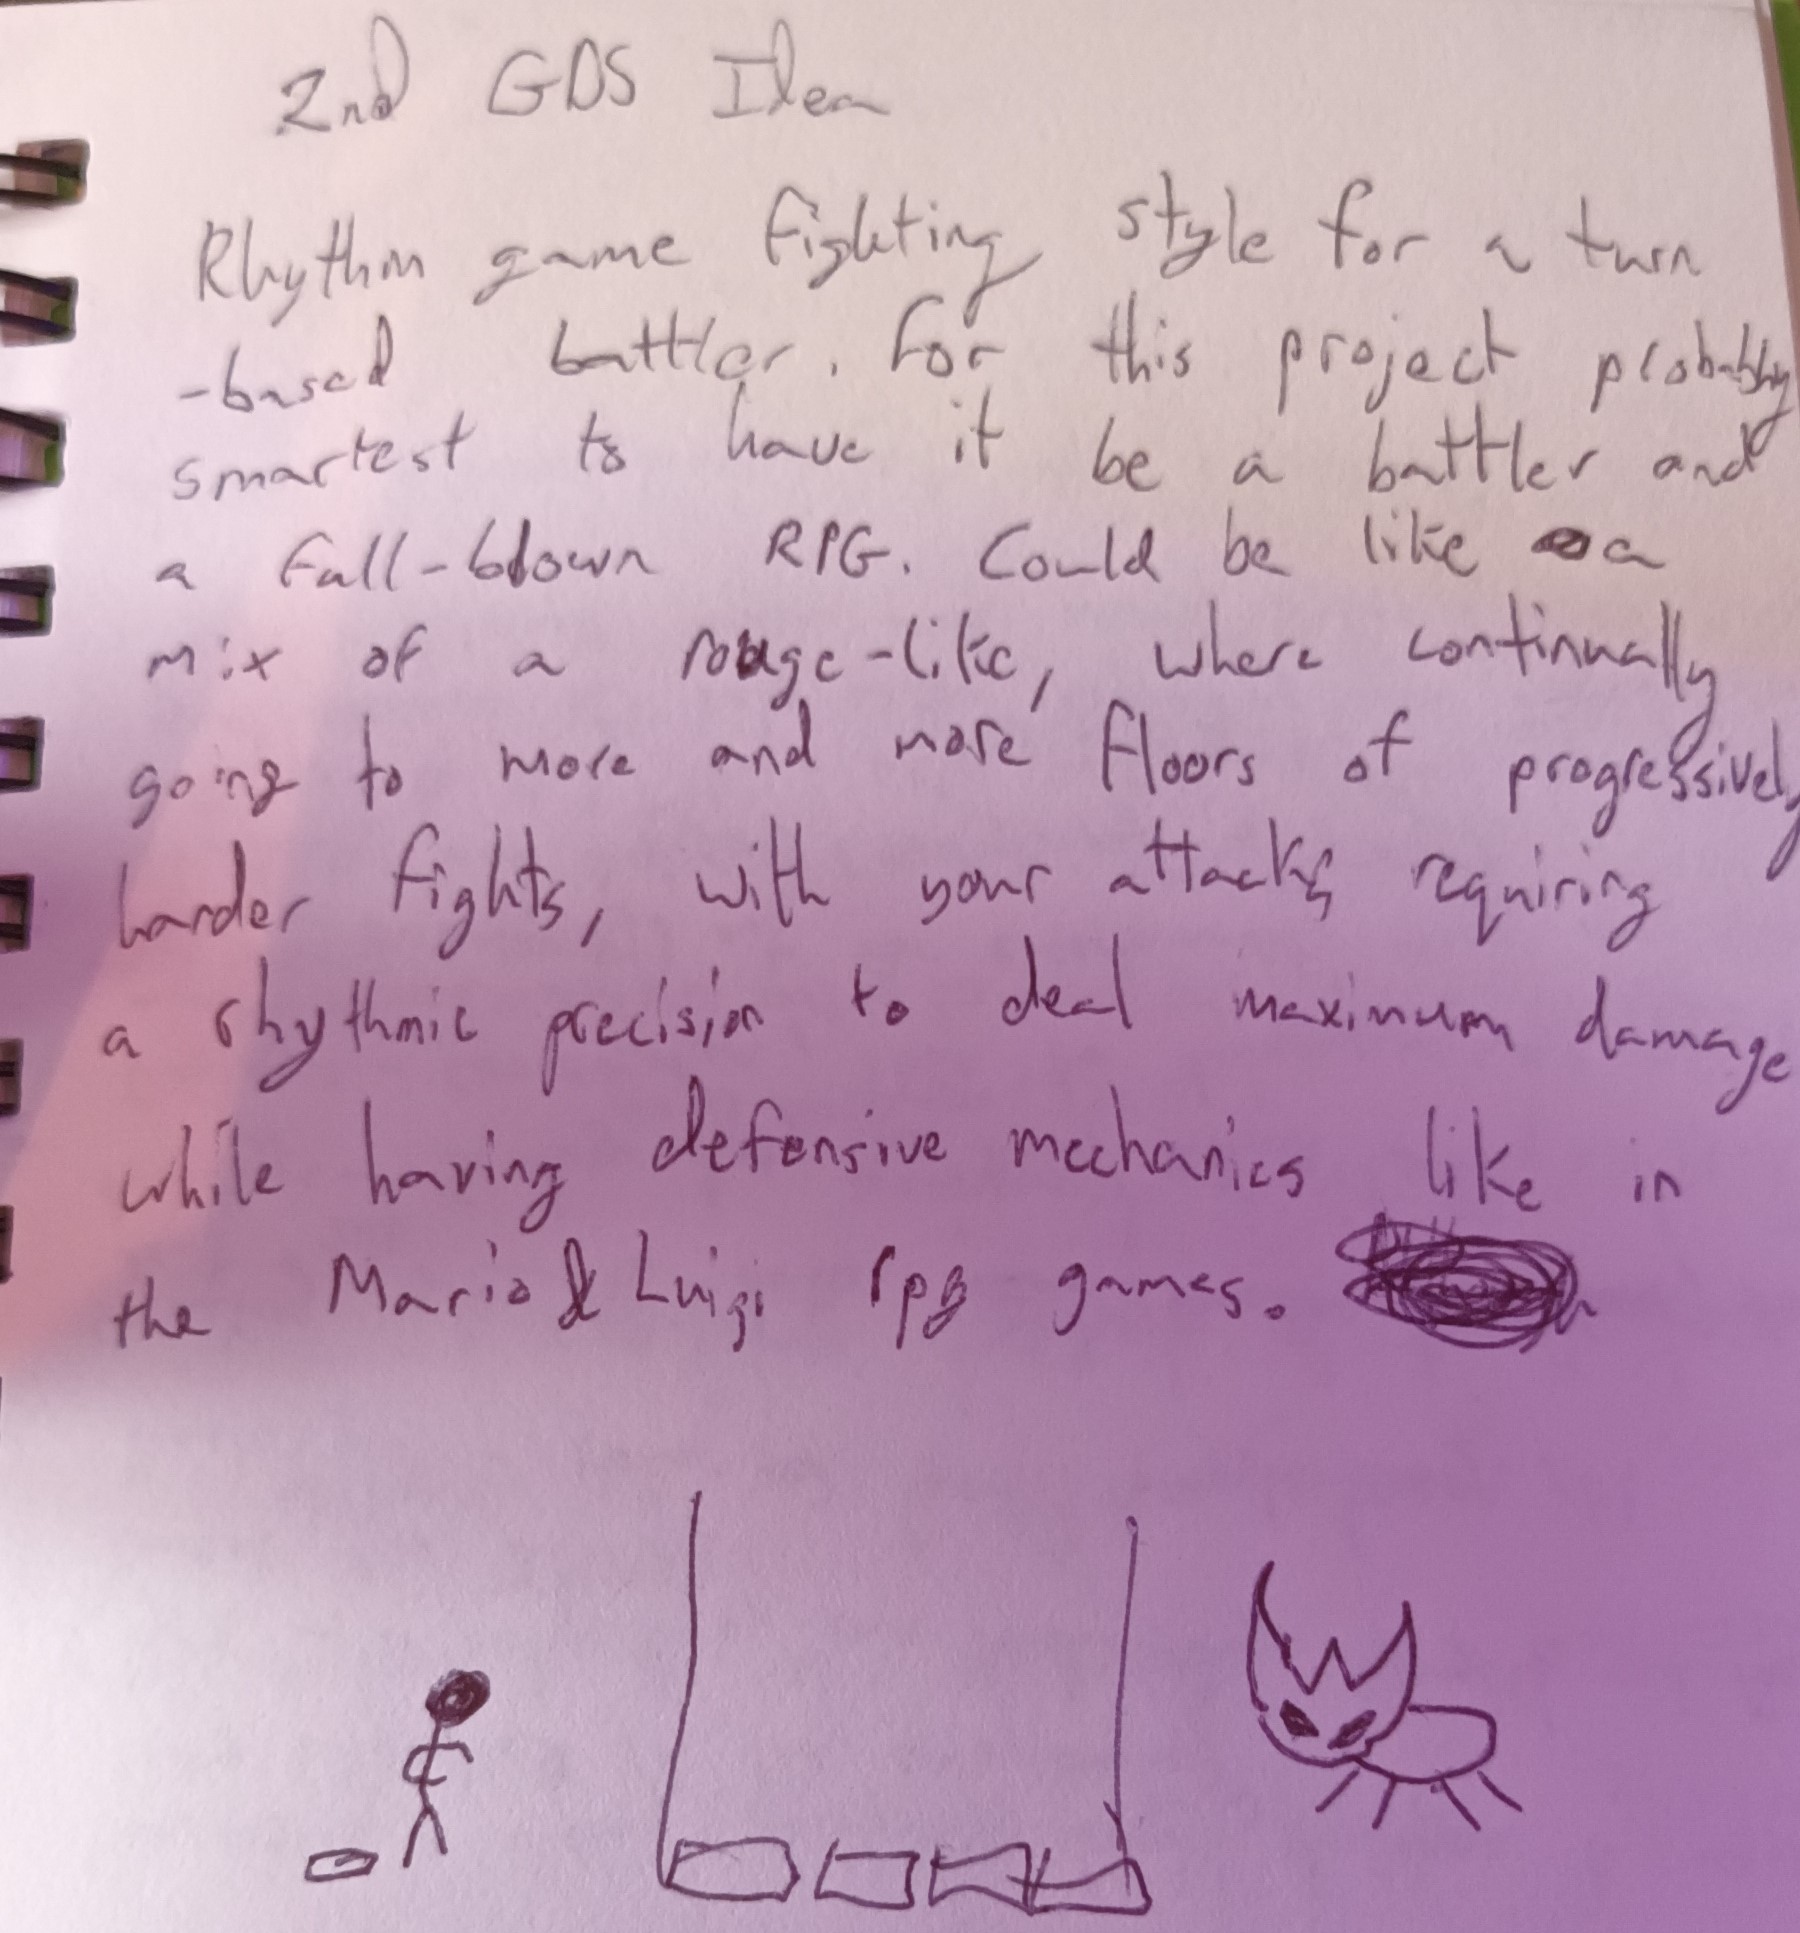 2nd GDS Idea
Rhythm game fighting style for a turn
-based battler. For this project probably
smartest to have it be a battler and
a full-blown RPG. Could be like a
mix of a rouge-like, where continually
going to more and more floors of progressively
harder fights, with your attacks requiring
a rhythmic precision to deal maximum damage
while having defensive mechanics like in
the Mario & Luigi rpg games.